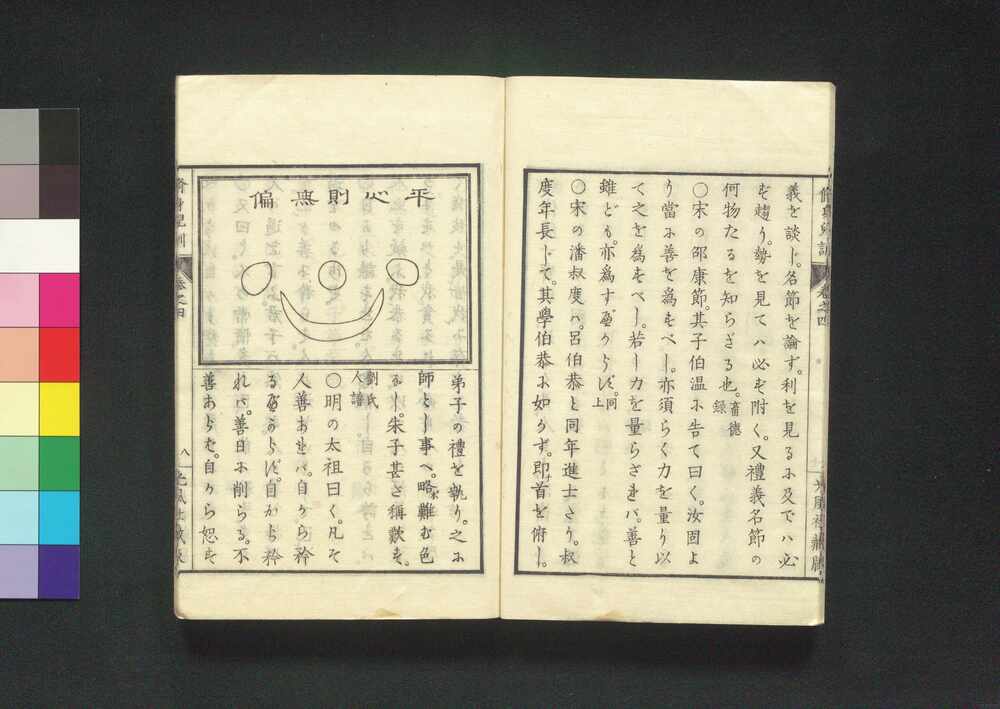 義を談ジ。名節を論ず。利を見るに及でハ必
ず趨り。勢を見てハ必ず附く。又禮義名節の
何物たるを知らざる也。畜德録
○宋の邵康節。其子伯温に告て曰く。汝固よ
り當に善を為すべし。亦須らく力を量り以
て之を為すべし。若し力を量らざれバ。善と
雖ども。亦為すべからず。同上
○宋の潘叔度ハ。呂伯恭と同年進士たり。叔
度年長じて。其學伯恭に如かず。即首を俯し。
平心則無偏
弟子の禮を執り。之に
師とし事へ。略難む色
なし。朱子甚ざ稱歎す。
劉氏人譜
○明の太祖曰く。凡そ
人善あれバ。自から矜
るべからず。自から矜
れバ。善日に削らる。不
善あらむ。自から恕す
脩身児訓
卷之四
八